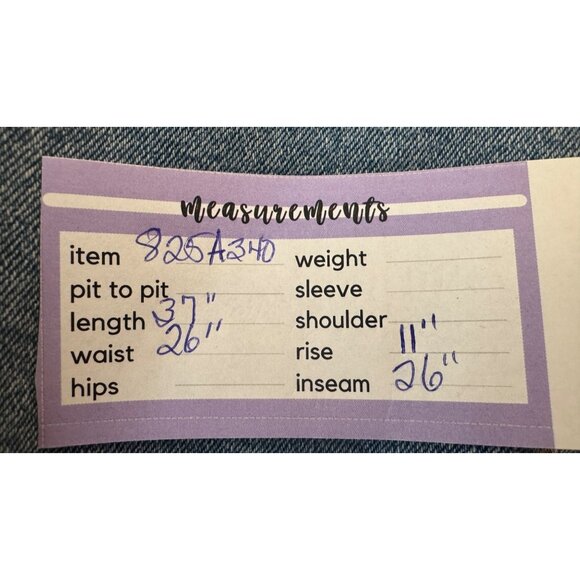 measurements
item 825A340
pit to pit
length 37"
waist 26"
hips
weight
sleeve
shoulder
rise 11"
inseam 26"